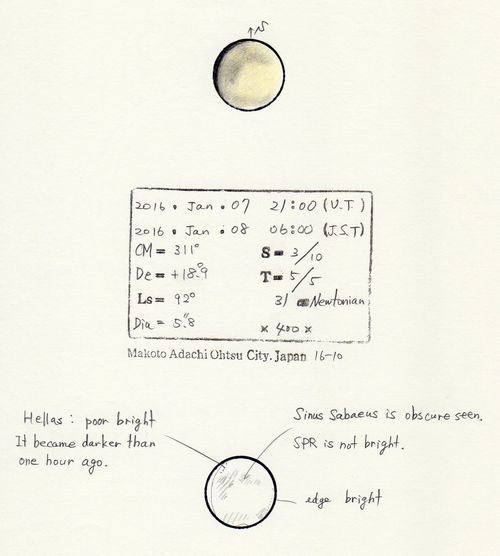 S
2016. Jan. 07 21:00 (U.T.)
2016. Jan. 08 06:00 (J.S.T)
CM= 311° S= 3/10
De= +18.°9 T= 5/5
Ls= 92° 31 Newtonian
Dia= 5.″8 × 400 ×
Makoto Adachi Ohtsu City. Japan 16-10
Hellas: poor bright
It became darker than
one hour ago.
Sinus Sabaeus is obscure seen.
SPR is not bright.
edge bright